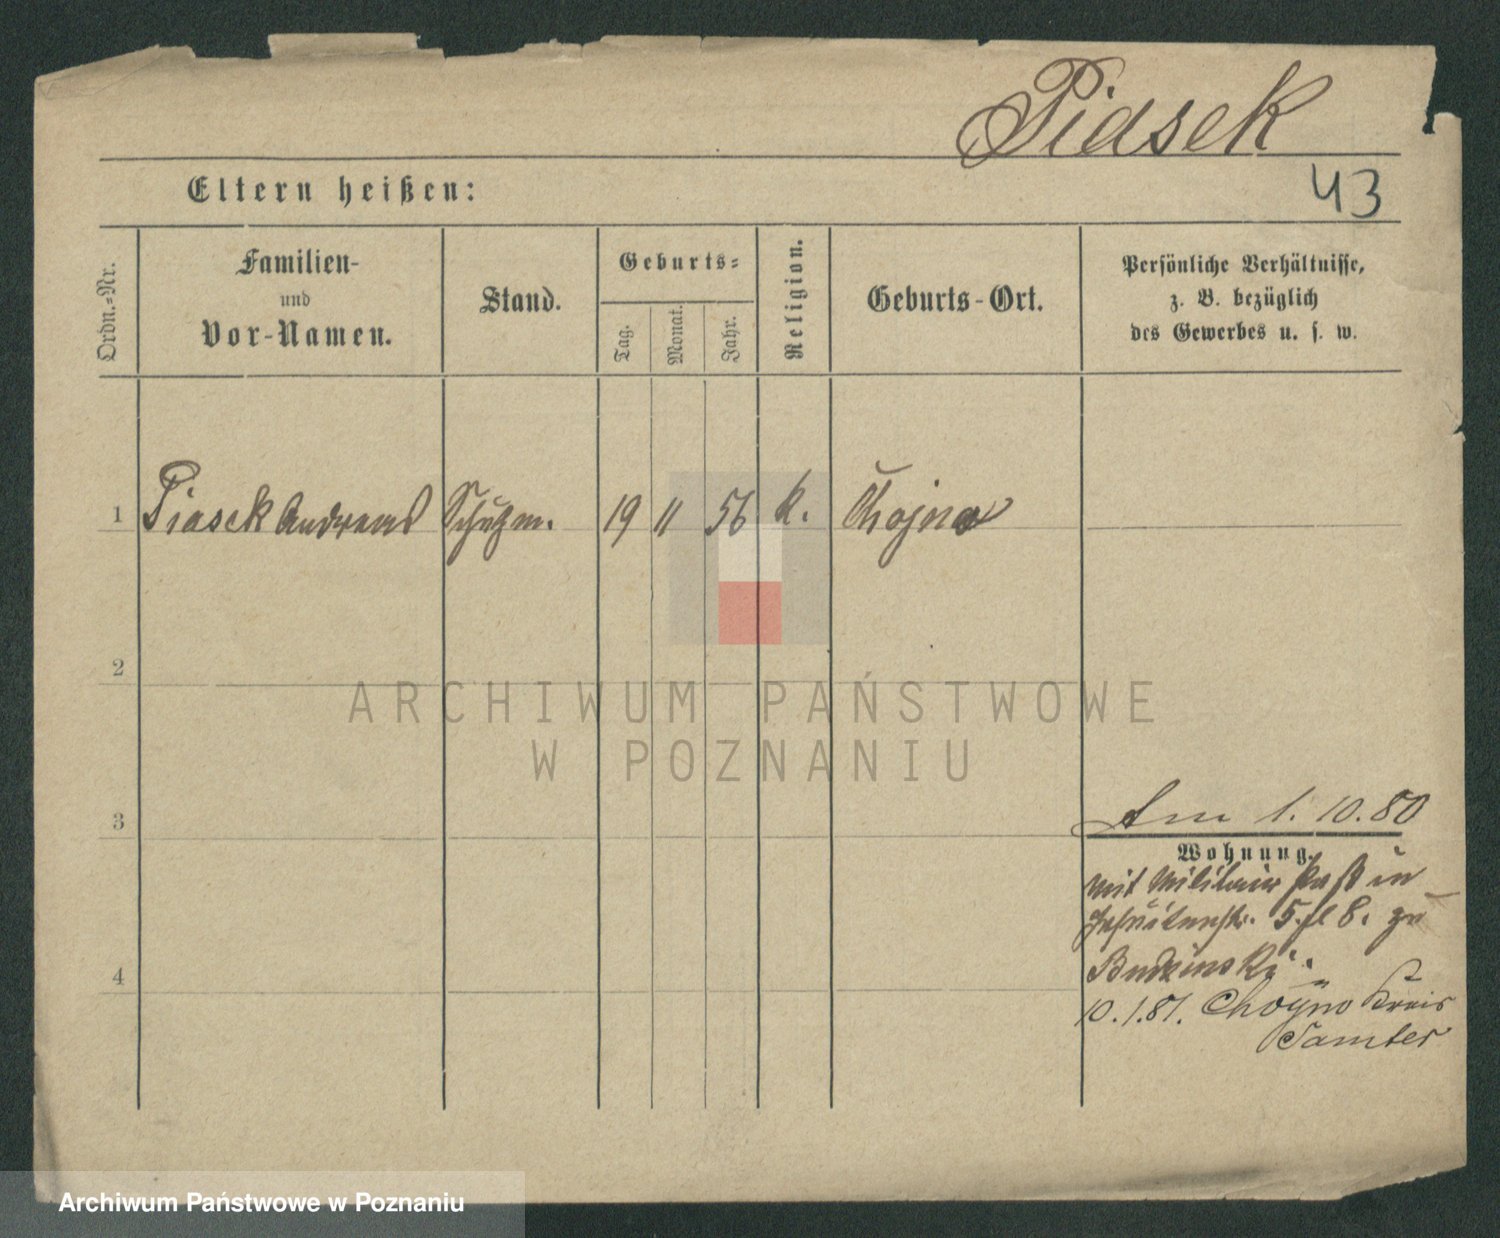 Piasek
43
Eltern heißen:
Ordn.-Nr.
Familien-
und
Vor-Namen.
Stand.
Geburts-
Tag.
Monat.
Jahr.
Religion.
Geburts-Ort.
Persönliche Verhältnisse,
z. B. bezüglich
des Gewerbes u. s. w.
1 Piasek Andreas Schuhm. 19 11 56 k. Chojno
2
ARCHIWUM PAŃSTWOWE
W POZNANIU
3
Am 1. 10. 80
Wohnung.
mit Militair Paß in
Jesuitenstr. 5. 8. zu
Budzinski.
4
10.1.81. Choyno Kreis
Samter
Archiwum Państwowe w Poznaniu